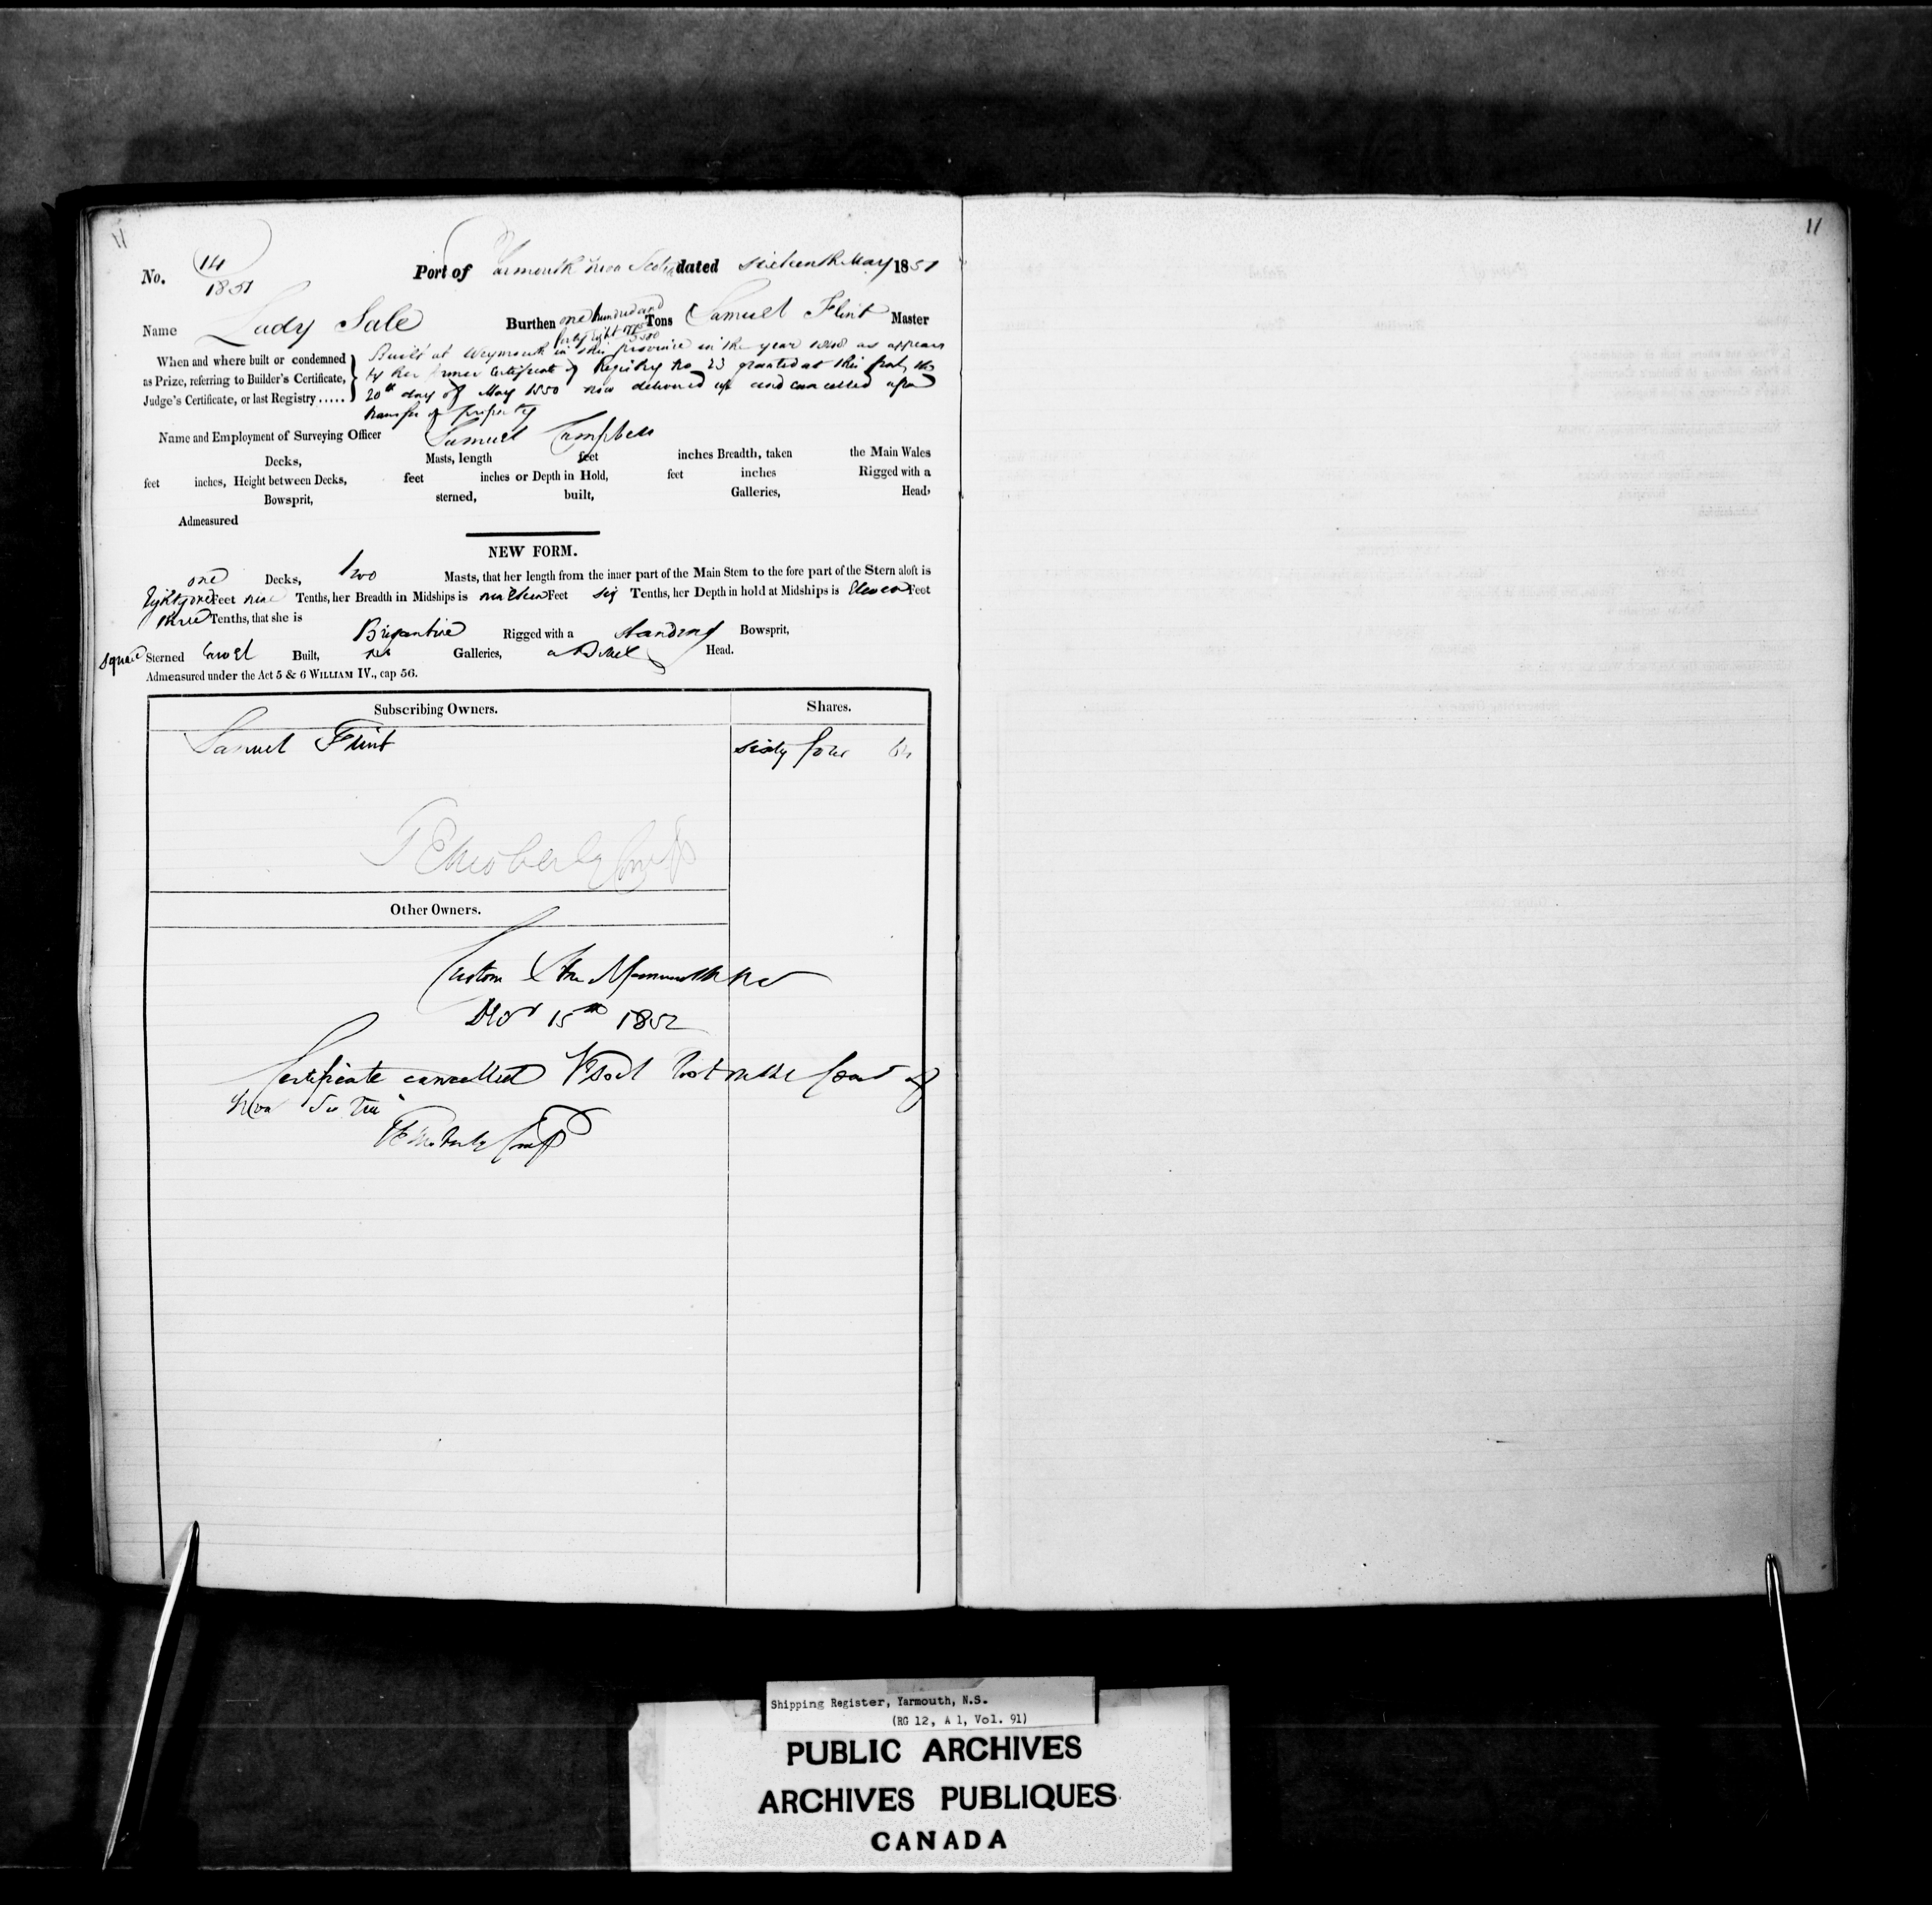 11
11
No. 14
1851
Port of Yarmouth Nova Scotia dated sixteenth May 1851
Name Lady Sale Burthen one hundred and forty eight Tons Samuel Flint Master
When and where built or condemned
as Prize, referring to Builder's Certificate,
Judge's Certificate, or last Registry .....
Built at Weymouth in this province in the year as appears
by her former Certificate of Registry No 23 granted at this port the
20th day of May 1850 now delivered up and cancelled upon
transfer of property
Name and Employment of Surveying Officer Samuel Campbell
Decks, Masts, length feet inches Breadth, taken the Main Wales
feet inches, Height between Decks, feet inches or Depth in Hold, feet inches Rigged with a
Bowsprit, sterned, built, Galleries, Head,
Admeasured
NEW FORM.
one Decks, two Masts, that her length from the inner part of the Main Stem to the fore part of the Stern aloft is
Eighty one Feet nine Tenths, her Breadth in Midships is nineteen Feet six Tenths, her Depth in hold at Midships is Eleven Feet
three Tenths, that she is Brigantine Rigged with a standing Bowsprit,
square Sterned Carvel Built, no Galleries, a Billet Head.
Admeasured under the Act 5 & 6 WILLIAM IV., cap 56.
Subscribing Owners. Shares.
Samuel Flint sixty four 64
T E Moberly Comp
Other Owners.
Custom House Yarmouth NS
15th 1852
Certificate cancelled Vessel lost on the Coast of
Nova Scotia
T E Moberly Comp
Shipping Register, Yarmouth, N.S.
(RG 12, A 1, Vol. 91)
PUBLIC ARCHIVES
ARCHIVES PUBLIQUES
CANADA